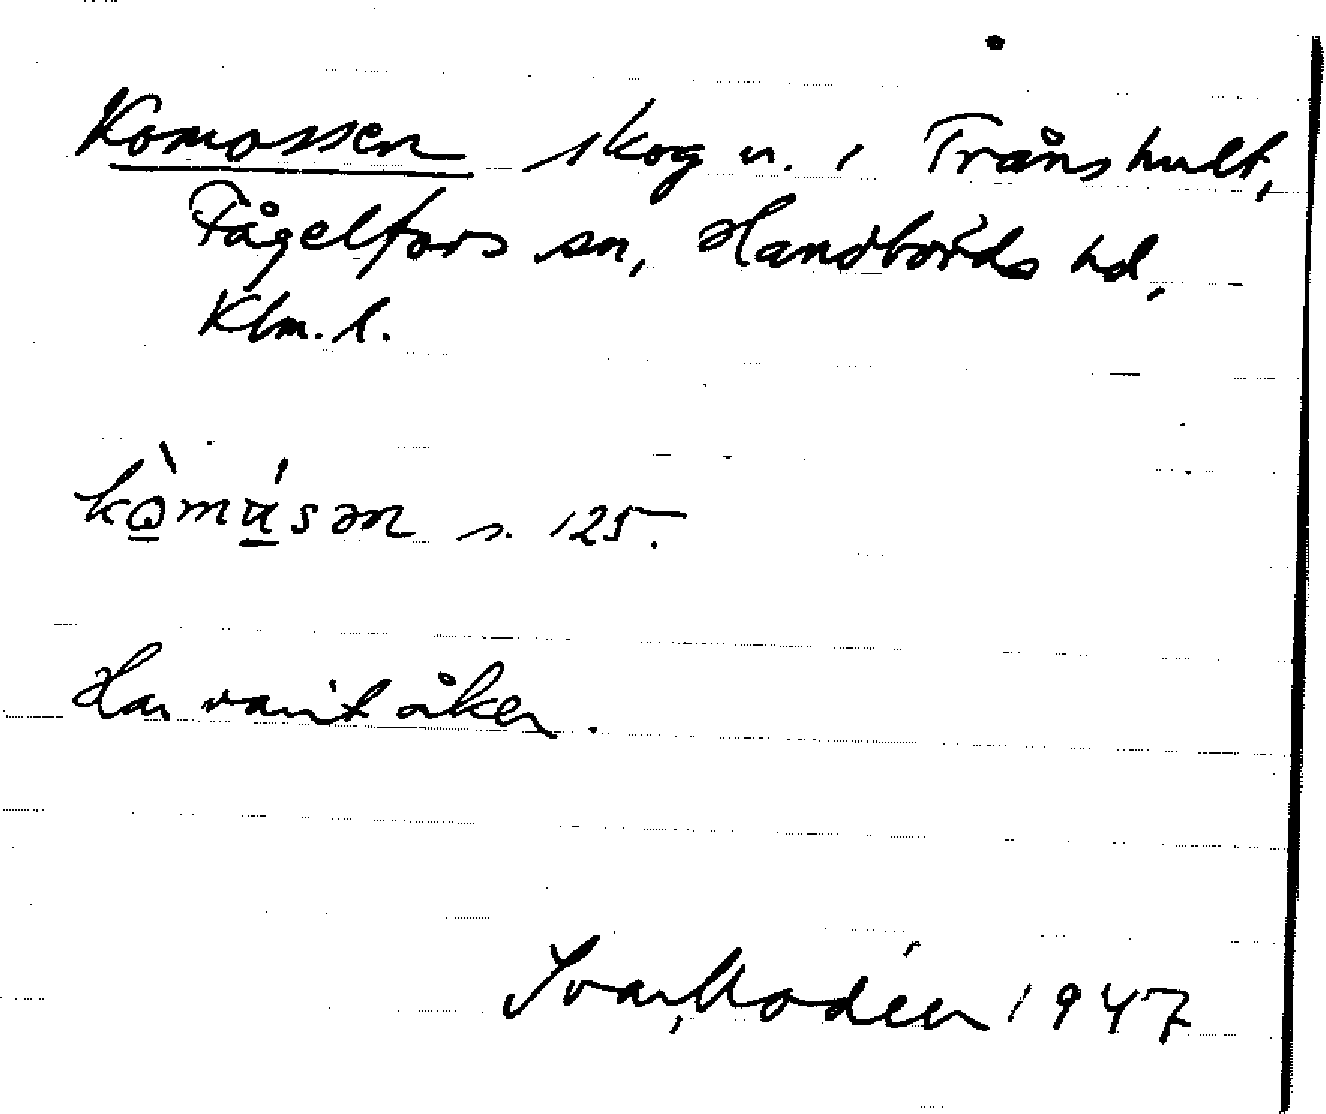 Komossen skog n. i Trånshult,
Fågelfors sn, Handbörds hd,
Klm. l.
s. 125.
Har varit åker.
Ivar Modéer 1947